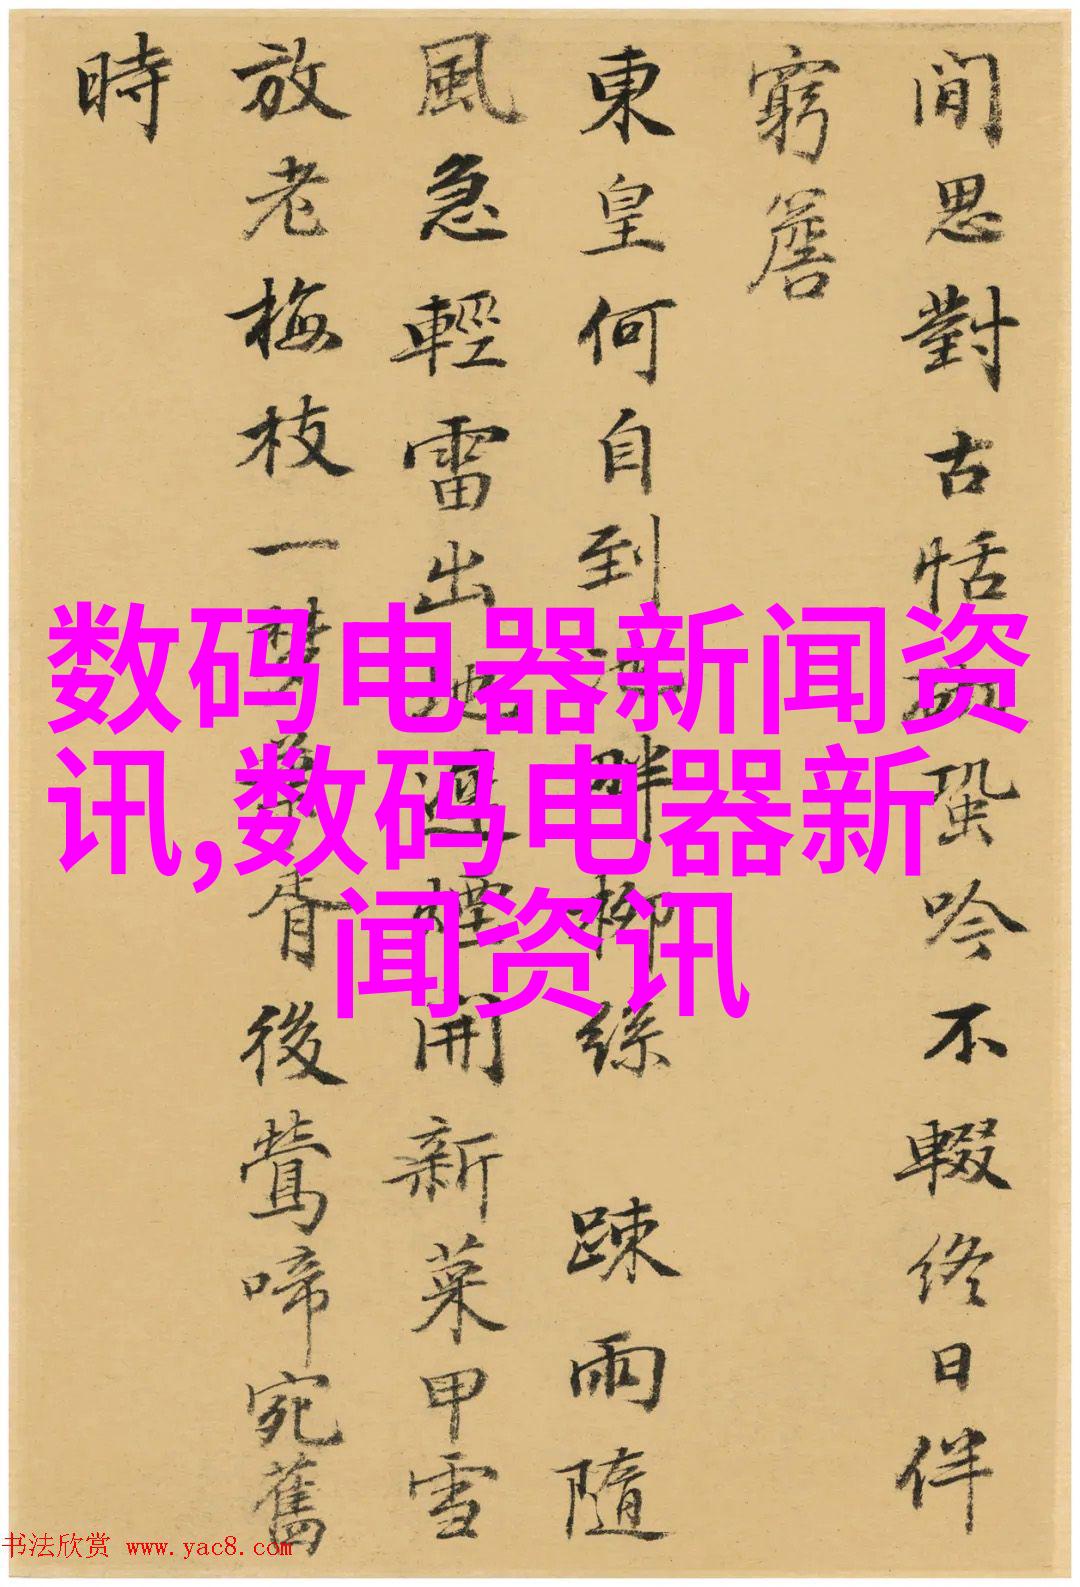 間思對古恬蛩吟不輟終日伴
窮簷
東皇何自到畔柳絲 踈雨隨
風急輕雷出地遲煙開新菜甲雪
放老梅枝一胥後鶯啼宛舊
時
数码电器新闻资
讯,数码电器新
闻资讯
书法欣赏 www.yac8.com